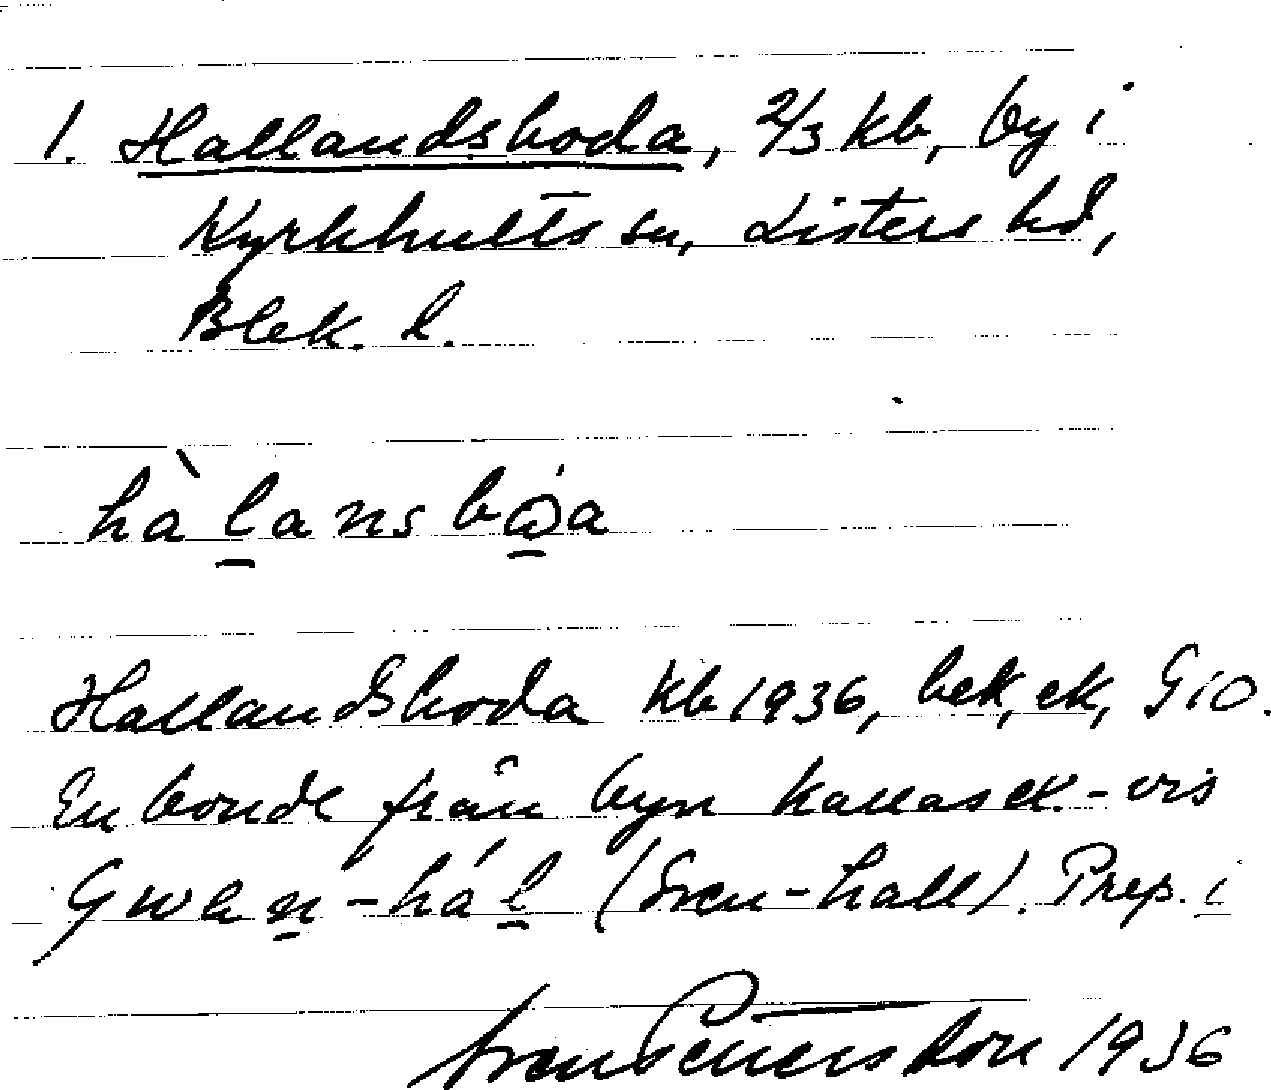 1. Hallandsboda, 2/3 kb, by i
Kyrkhults sn, Listers hd,
Blek. l.
hàlansbóa
Hallandsboda kb 1936, bek, ek, G i O.
En bonde från byn kallas ex.-vis
(Sven-hall). Prep. i
Sven Petersson 1936